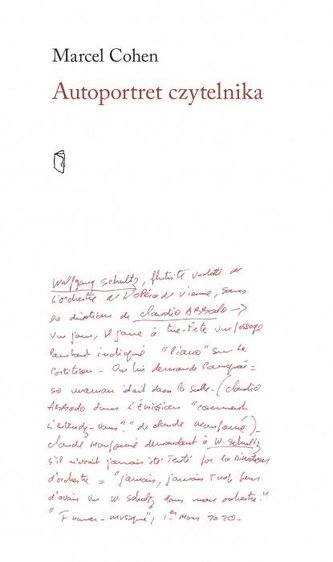 Marcel Cohen
Autoportret czytelnika
Wolfgang Schultz, flûtiste vedette de
l'orchestre de l'Opéra de Vienne, sous
la direction de Claudio Abbado →
un jour, il joue à tue-tête un passage
pourtant indiqué "piano" sur la
partition - On lui demande pourquoi =
sa maman était dans la salle. (Claudio
Abbado dans l'émission "comment
l'entendez-vous?" de Claude Maupomé)-
Claude Maupomé demandant à W. Schultz
s'il n'avait jamais été tenté par la direction
d'orchestre = "jamais, jamais
d'avoir un W. Schultz dans mon orchestre."
"France-musique", 1er mars